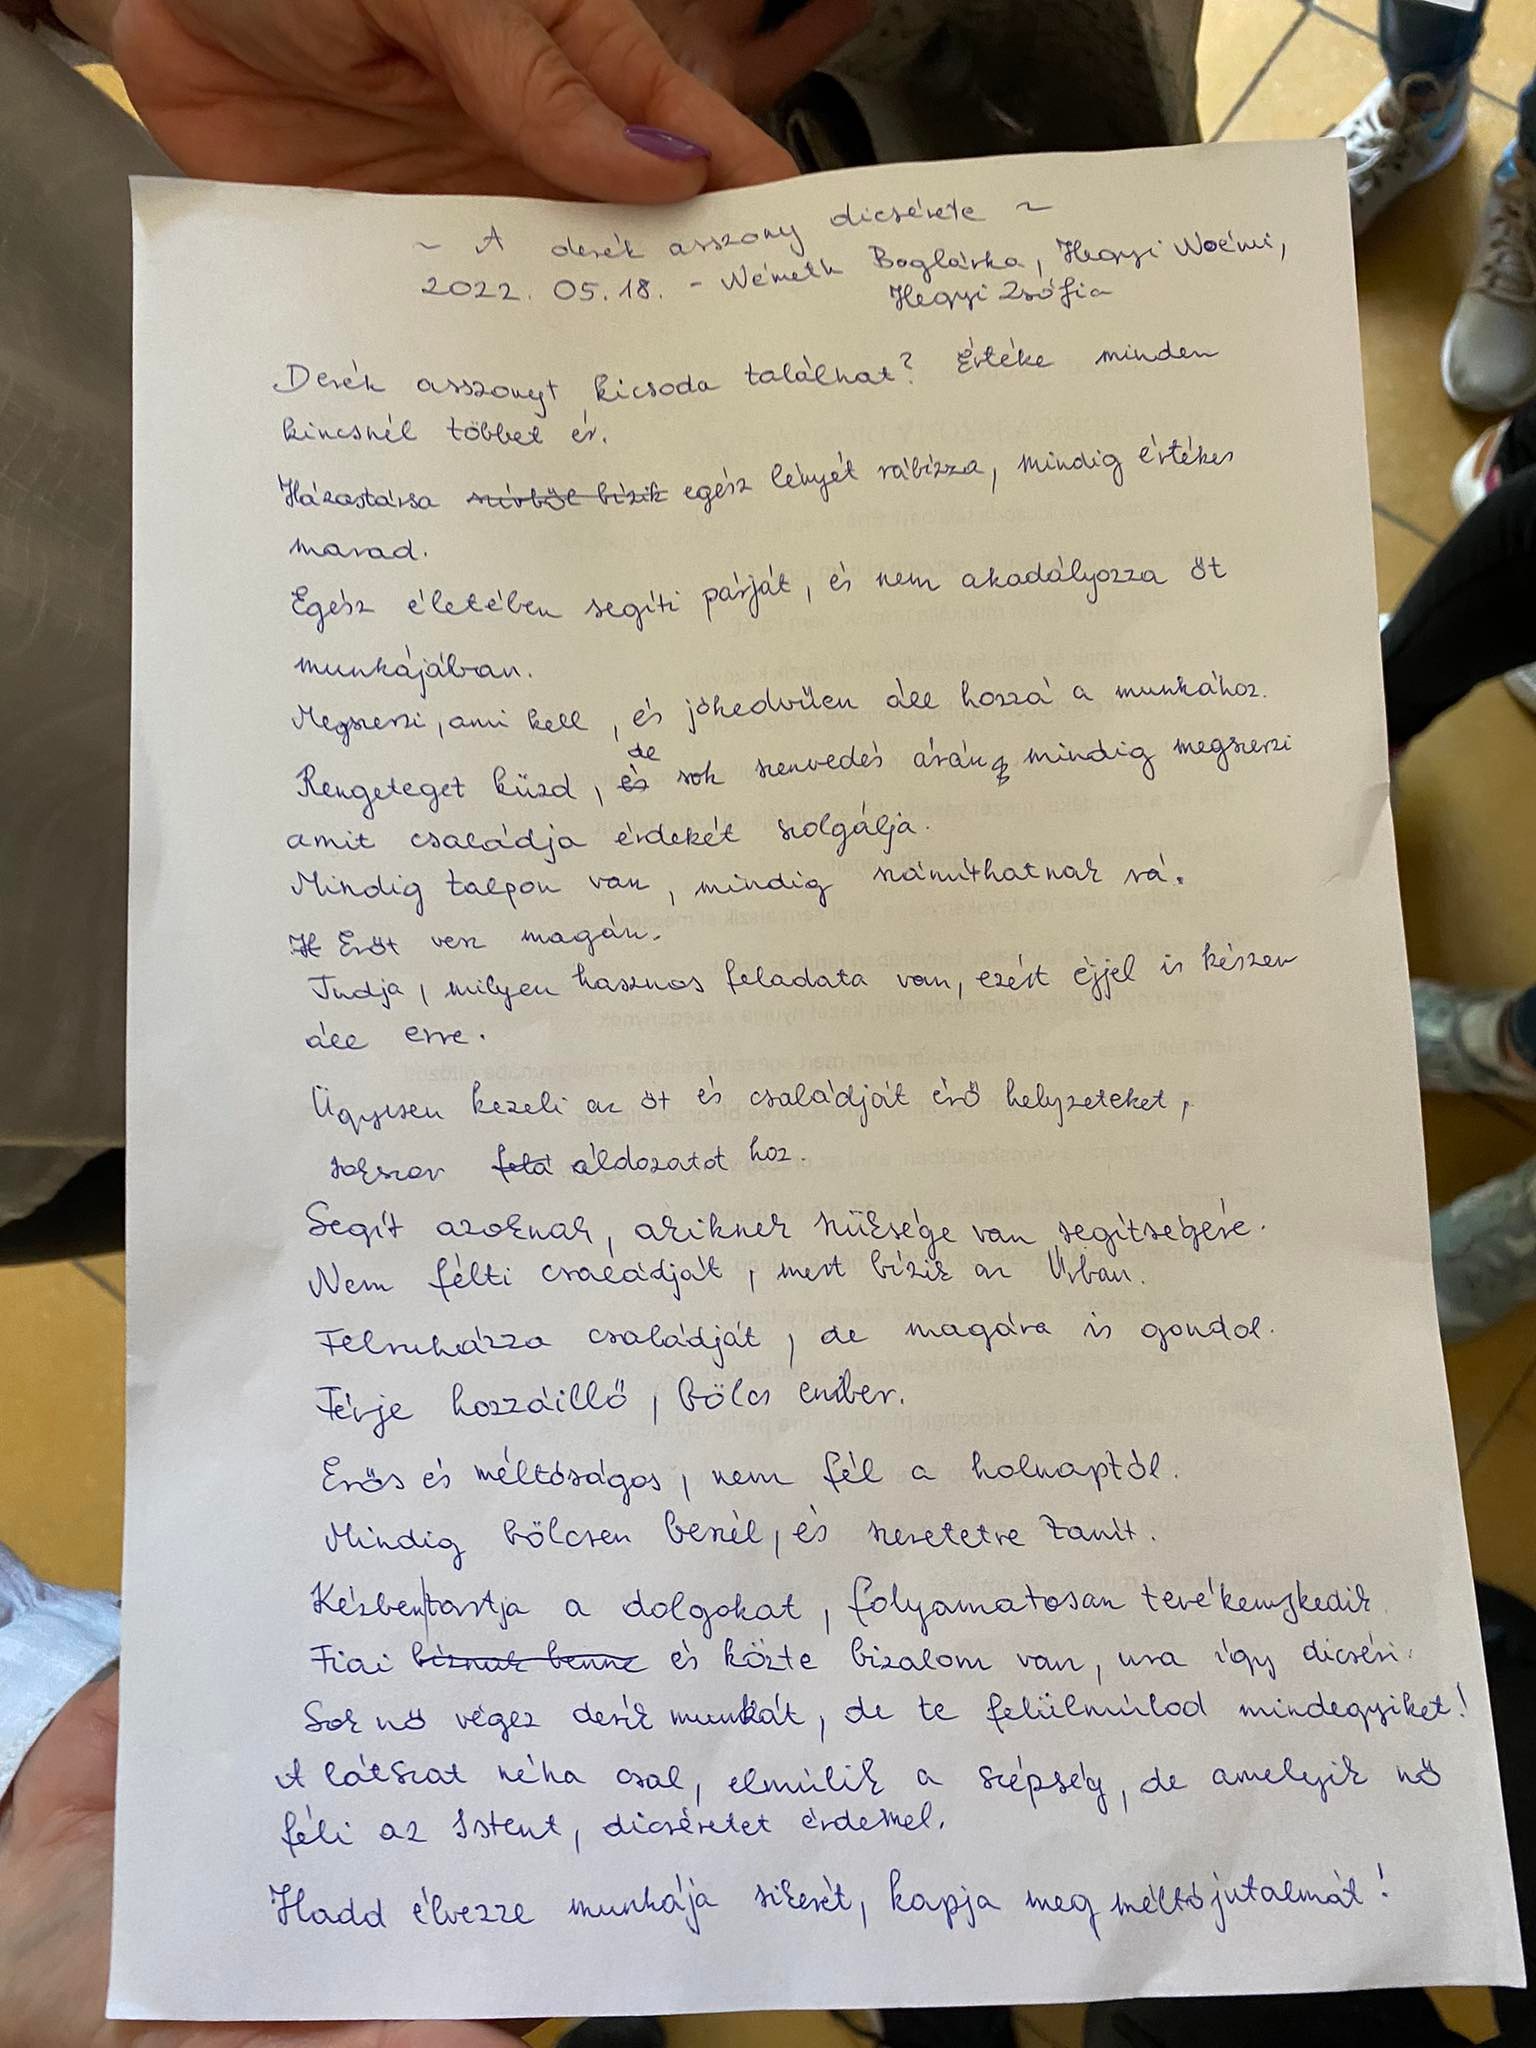 ~ A derék asszony dicsérete ~
2022. 05. 18. - Németh Boglárka, Hegyi Noémi,
Hegyi Zsófia
Derék asszonyt kicsoda találhat? Értéke minden
kincsnél többet ér.
Házastársa szívből bízik egész lényét rábízza, mindig értékes
marad.
Egész életében segíti párját, és nem akadályozza őt
munkájában.
Megszerzi, ami kell, és jókedvűen áll hozzá a munkához.
de
Rengeteget küzd, és sok szenvedés árán mindig megszerzi
amit családja érdekét szolgálja.
Mindig talpon van, mindig számíthatnak rá.
H Erőt vesz magán.
Tudja, milyen hasznos feladata van, ezért éjjel is készen
áll erre.
Ügyesen kezeli az őt és családját érő helyzeteket,
sokszor felá áldozatot hoz.
Segít azoknak, akiknek szüksége van segítségére.
Nem félti családját, mert bízik az Úrban.
Felruházza családját, de magára is gondol.
Férje hozzáillő, bölcs ember.
Erős és méltóságos, nem fél a holnaptól.
Mindig bölcsen beszél, és szeretetre tanít.
Kézben|tartja a dolgokat, folyamatosan tevékenykedik
Fiai bíznak benne és közte bizalom van, ura így dicséri.
Sok nő végez derék munkát, de te felülmúlod mindegyiket!
A látszat néha csal, elmúlik a szépség, de amelyik nő
féli az Istent, dicséretet érdemel.
Hadd élvezze munkája sikerét, kapja meg méltó jutalmát!